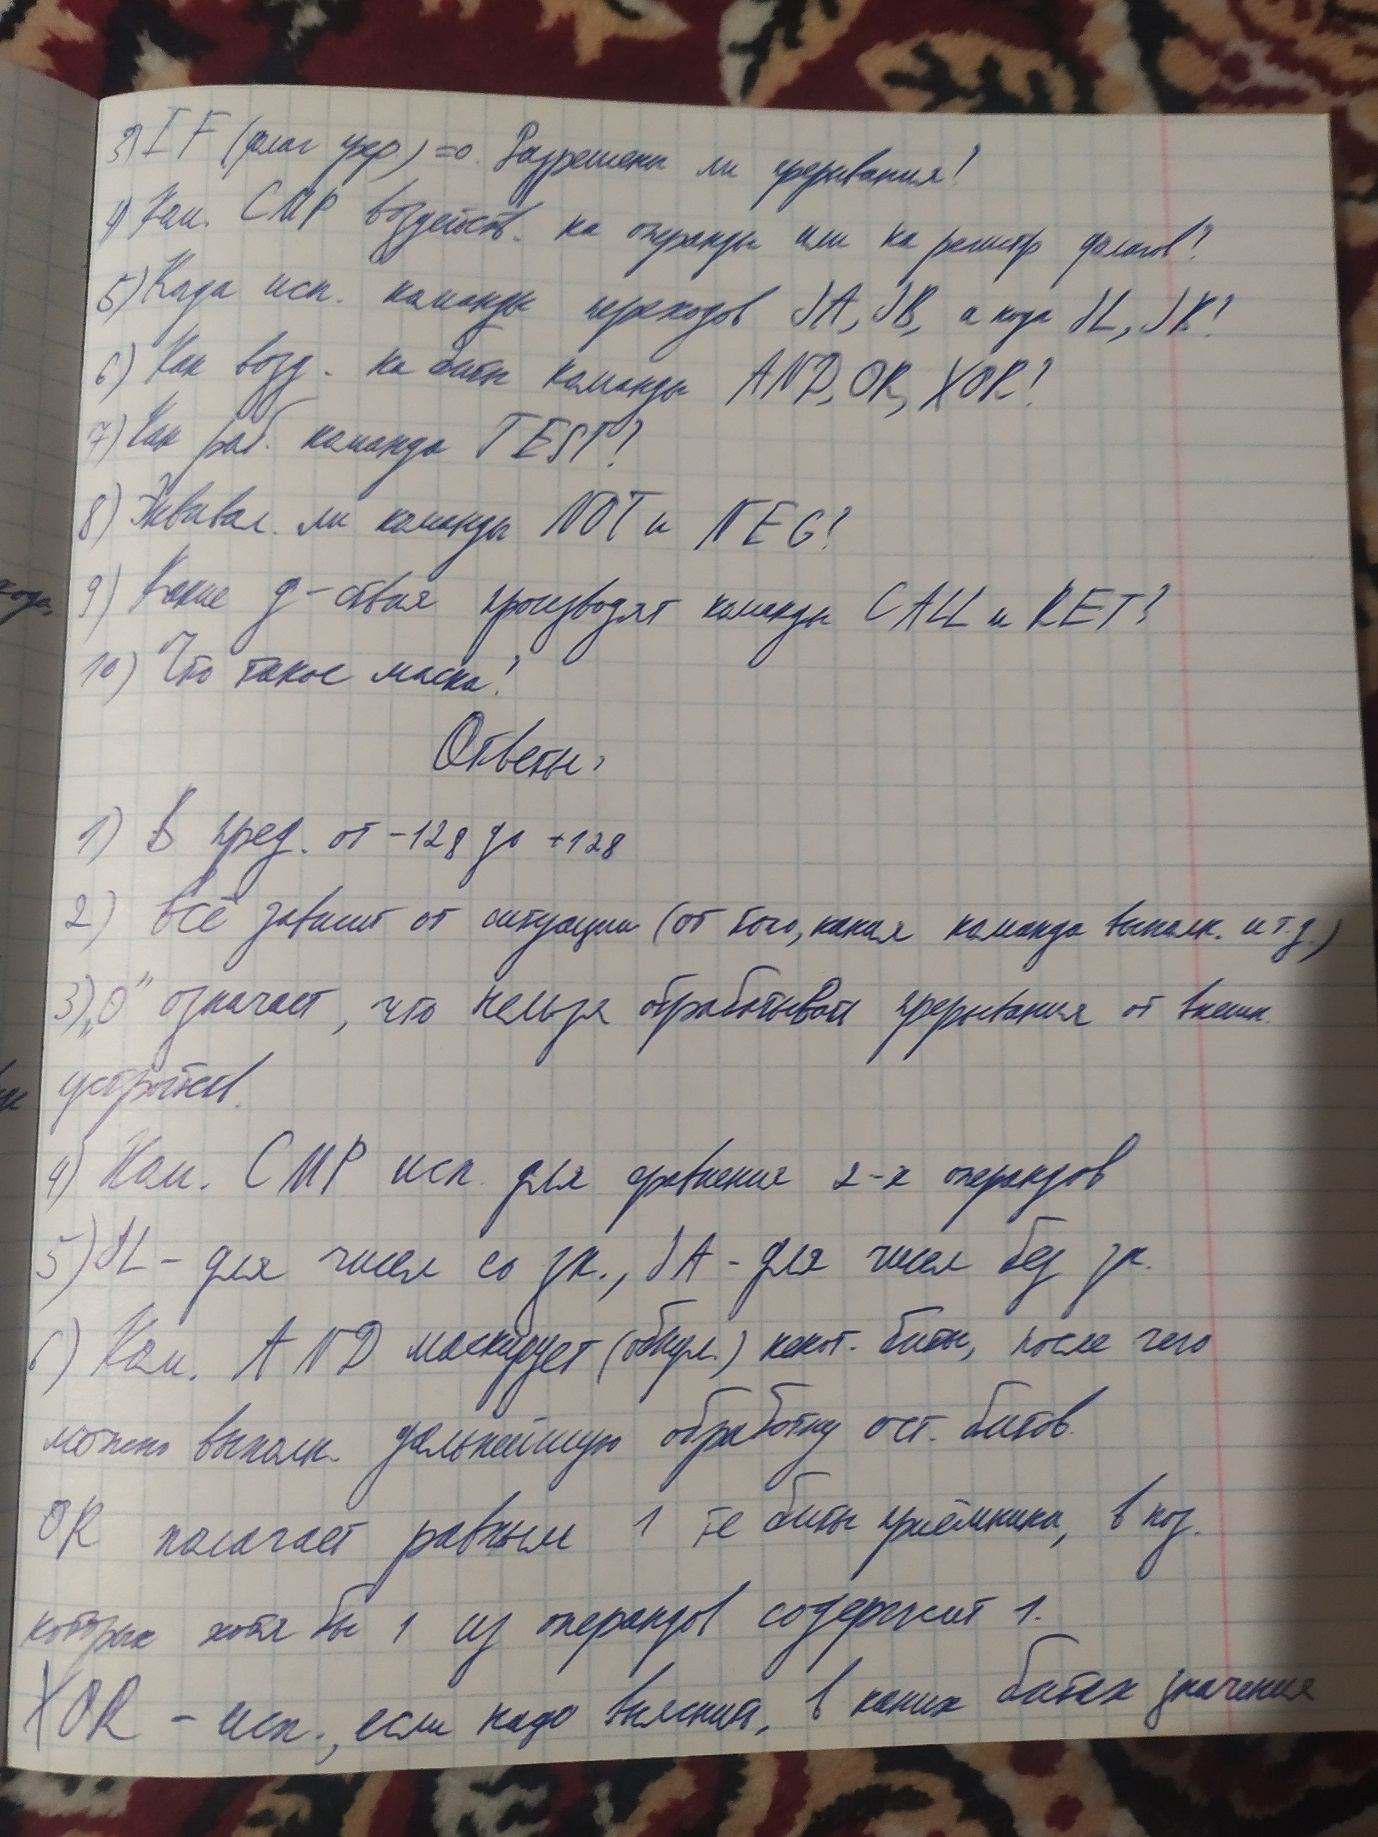 3) IF (флаг прер.) =0. Разрешены ли прерывания?
4) Ком. CMP воздейств. на операнды или на регистр флагов?
5) Когда исп. команды переходов JA, JB, а когда JL, JK?
6) Как возд. на биты команды AND, OR, XOR?
7) Как раб. команда TEST?
8) Эквивал. ли команды NOT и NEG?
9) Какие д-ствия производят команды CALL и RET?
10) Что такое маска?
Ответы:
1) В пред. от -128 до +128
2) Всё зависит от ситуации (от того, какая команда выполн. и т.д.)
3) „0" означает, что нельзя обрабатывать прерывания от внешн.
устройств.
4) Ком. CMP исп. для сравнения 2-х операндов
5) JL - для чисел со зн., JA - для чисел без зн.
6) Ком. AND маскирует (обнул.) некот. биты, после чего
можно выполн. дальнейшую обработку ост. битов.
OR полагает равным 1 те биты приёмника, в поз.
которых хотя бы 1 из операндов содержит 1.
XOR - исп., если надо выяснить, в каких битах значения